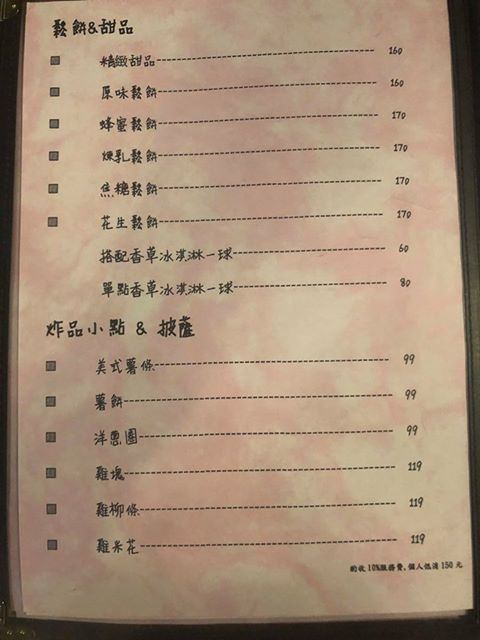 鬆餅&甜品
精緻甜品 160
原味鬆餅 160
蜂蜜鬆餅 170
煉乳鬆餅 170
焦糖鬆餅 170
花生鬆餅 170
搭配香草冰淇淋一球 60
單點香草冰淇淋一球 80
炸品小點 & 披薩
美式薯條 99
薯餅 99
洋蔥圈 99
雞塊 119
雞柳條 119
雞米花 119
酌收10%服務費,個人低消150元